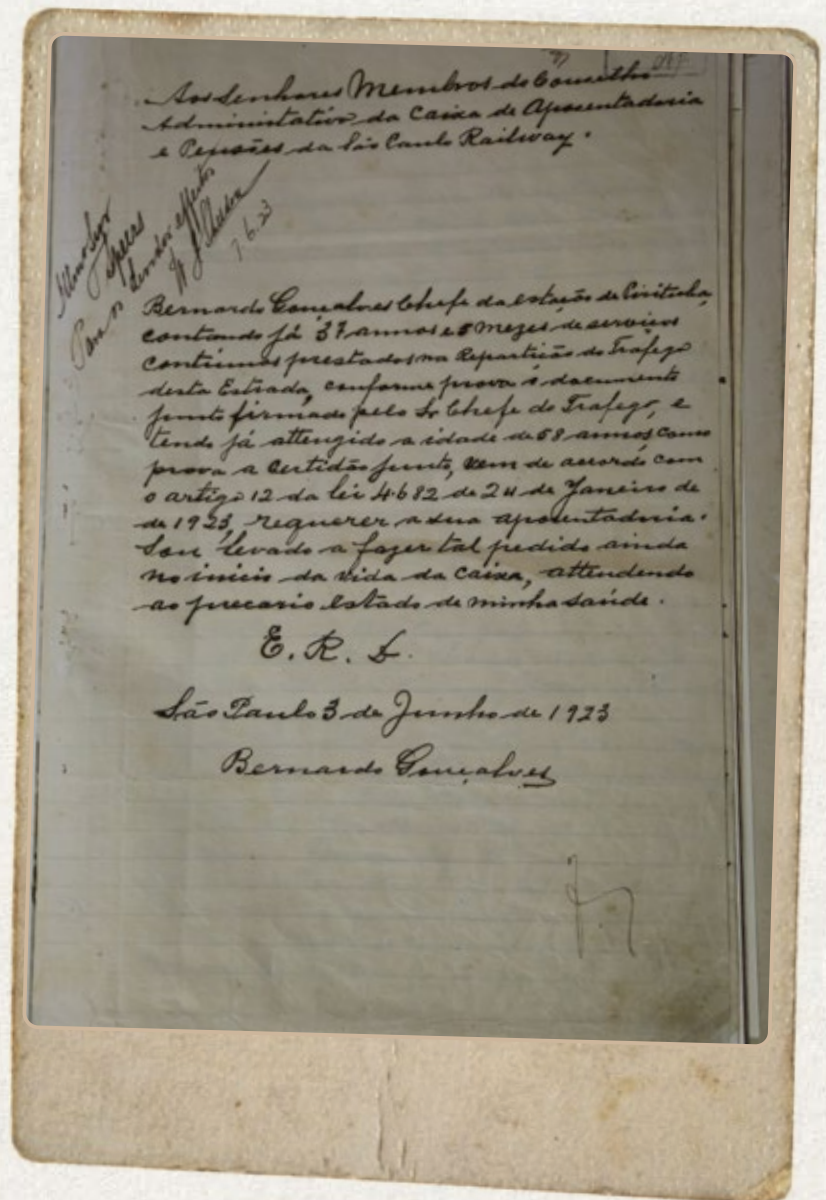 Aos Senhores Membros do Conselho
Administrativo da Caixa de Aposentadoria
e Pensões da São Paulo Railway.
Illmo Snr
Speers
Para os devidos effeitos
7.6.23
Bernardo Gonçalves Chefe da estação de Pirituba,
contando já 37 annos e 5 mezes de serviços
contínuos prestados na Repartição do Trafego
desta Estrada, conforme prova o documento
junto firmado pelo Sr Chefe do Trafego, e
tendo já attengido a idade de 68 annos como
prova a certidão junto, vem de accordo com
o artigo 12 da lei 4.682 de 24 de Janeiro de
de 1923, requerer a sua aposentadoria.
Sou levado a fazer tal pedido ainda
no inicio da vida da Caixa, attendendo
ao precario estado de minha saúde.
E. R. D.
São Paulo 3 de Junho de 1923
Bernardo Gonçalves